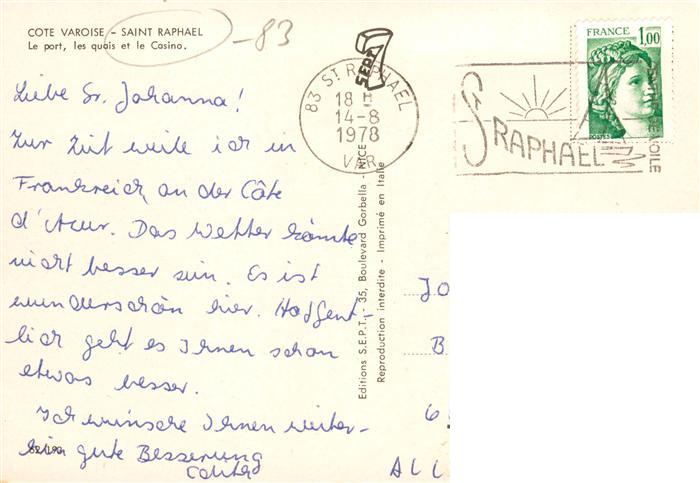 COTE VAROISE - SAINT RAPHAEL
Le port, les quais et le Casino.
-83
SEPT
83 ST RAPHAEL
18 H
14-8
1978
VAR
FRANCE
1,00
POSTES
St RAPHAEL
VOILE
Liebe Sr. Johanna!
Zur Zeit weile ich in
Frankreich, an der Côte
d'Azur. Das Wetter könnte
nicht besser sein. Es ist
wunderschön hier. Hoffent-
lich geht es Ihnen schon
etwas besser.
Ich wünsche Ihnen weiter-
hin gute Besserung
Editions S.E.P.T. - 35, Boulevard Gorbella - NICE
Reproduction interdite - Imprimé en Italie
JO
B
6
ALL